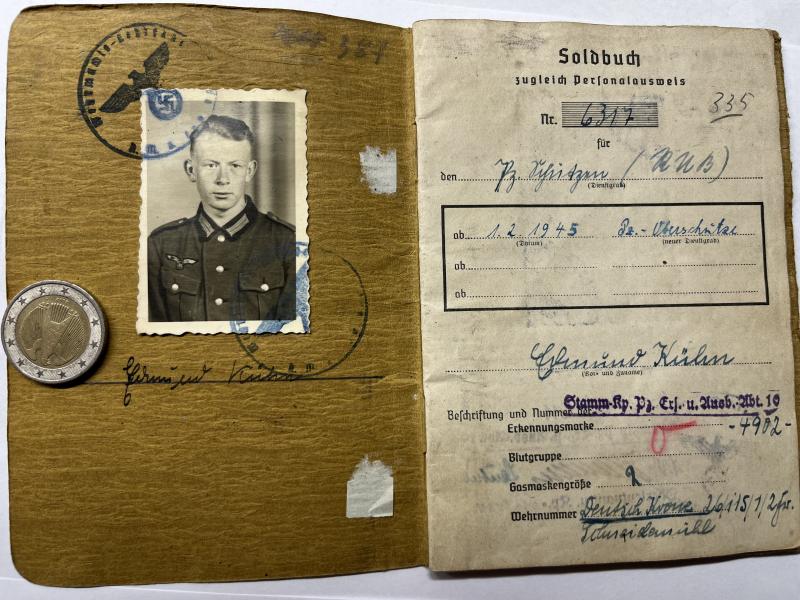 357
Edmund Kühn
Soldbuch
zugleich Personalausweis
Nr. 6317 335
für
den Pz. Schützen (KUB)
(Dienstgrad)
ab 1.2.1945 Pz.-Oberschütze
(Datum) (neuer Dienstgrad)
ab
ab
Edmund Kühn
(Vor- und Zuname)
Stamm-Kp. Pz. Ers. u. Ausb. Abt. 10
Beschriftung und Nummer der
Erkennungsmarke -4902-
Blutgruppe O
Gasmaskengröße 2
Wehrnummer Deutsch Krone 26/115/1/2
Schneidemühl